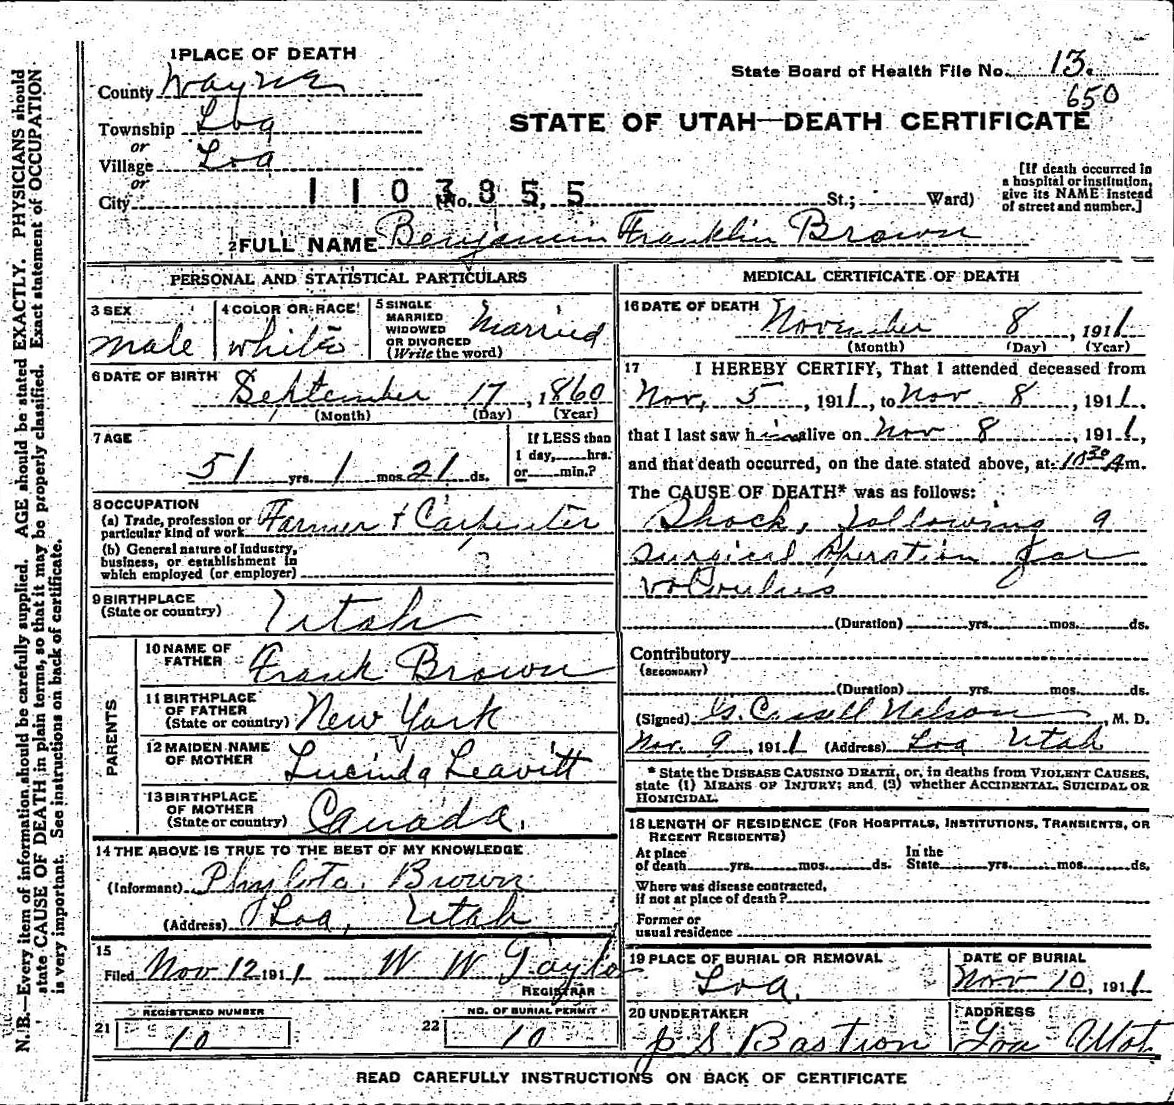 1 PLACE OF DEATH
County Wayne
Township Loa
or
Village Loa
or
City 1103855 No. St.; Ward)
State Board of Health File No. 13.
650
STATE OF UTAH—DEATH CERTIFICATE
[If death occurred in
a hospital or institution,
give its NAME instead
of street and number.]
2 FULL NAME Benjamin Franklin Brown
PERSONAL AND STATISTICAL PARTICULARS
3 SEX
male
4 COLOR OR RACE
white
5 SINGLE
MARRIED
WIDOWED
OR DIVORCED
(Write the word)
Married
6 DATE OF BIRTH
September 17, 1860
(Month) (Day) (Year)
7 AGE
51 yrs. 1 mos. 21 ds.
If LESS than
1 day, hrs.
or min.?
8 OCCUPATION
(a) Trade, profession or
particular kind of work Farmer + Carpenter
(b) General nature of industry,
business, or establishment in
which employed (or employer)
9 BIRTHPLACE
(State or country)
Utah
PARENTS
10 NAME OF
FATHER
Frank Brown
11 BIRTHPLACE
OF FATHER
(State or country) New York
12 MAIDEN NAME
OF MOTHER
Lucinda Leavitt
13 BIRTHPLACE
OF MOTHER
(State or country)
Canada.
14 THE ABOVE IS TRUE TO THE BEST OF MY KNOWLEDGE
(Informant) Brown
(Address) Loa, Utah
15
Filed Nov 12 1911 W W Taylo
REGISTRAR
21 REGISTERED NUMBER
10
22 NO. OF BURIAL PERMIT
10
MEDICAL CERTIFICATE OF DEATH
16 DATE OF DEATH
November 8, 1911
(Month) (Day) (Year)
17 I HEREBY CERTIFY, That I attended deceased from
Nov. 5, 1911, to Nov 8, 1911,
that I last saw him alive on Nov 8, 1911,
and that death occurred, on the date stated above, at 10 30 A m.
The CAUSE OF DEATH* was as follows:
Shock, following a
surgical operation for
volvulus
(Duration) yrs. mos. ds.
Contributory
(SECONDARY)
(Duration) yrs. mos. ds.
(Signed) G. Nelson, M. D.
Nov. 9, 1911 (Address) Loa Utah
* State the DISEASE CAUSING DEATH, or, in deaths from VIOLENT CAUSES,
state (1) MEANS OF INJURY; and (3) whether ACCIDENTAL, SUICIDAL OR
HOMICIDAL.
18 LENGTH OF RESIDENCE (FOR HOSPITALS, INSTITUTIONS, TRANSIENTS, OR
RECENT RESIDENTS)
At place
of death yrs. mos. ds.
In the
State yrs. mos. ds.
Where was disease contracted,
if not at place of death?
Former or
usual residence
19 PLACE OF BURIAL OR REMOVAL
Loa.
DATE OF BURIAL
Nov 10, 1911
20 UNDERTAKER
J S Bastion
ADDRESS
Loa Utah.
READ CAREFULLY INSTRUCTIONS ON BACK OF CERTIFICATE
N. B.—Every item of information should be carefully supplied. AGE should be stated EXACTLY. PHYSICIANS should
state CAUSE OF DEATH in plain terms, so that it may be properly classified. Exact statement of OCCUPATION
is very important. See instructions on back of certificate.